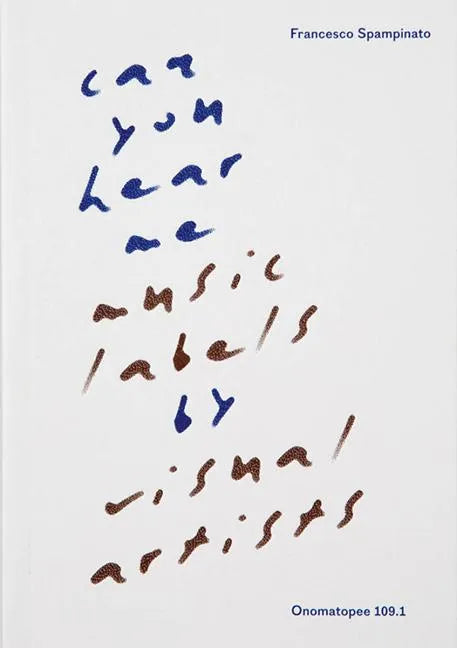 Francesco Spampinato
can
you
hear
me
music
labels
by
visual
artists
Onomatopee 109.1